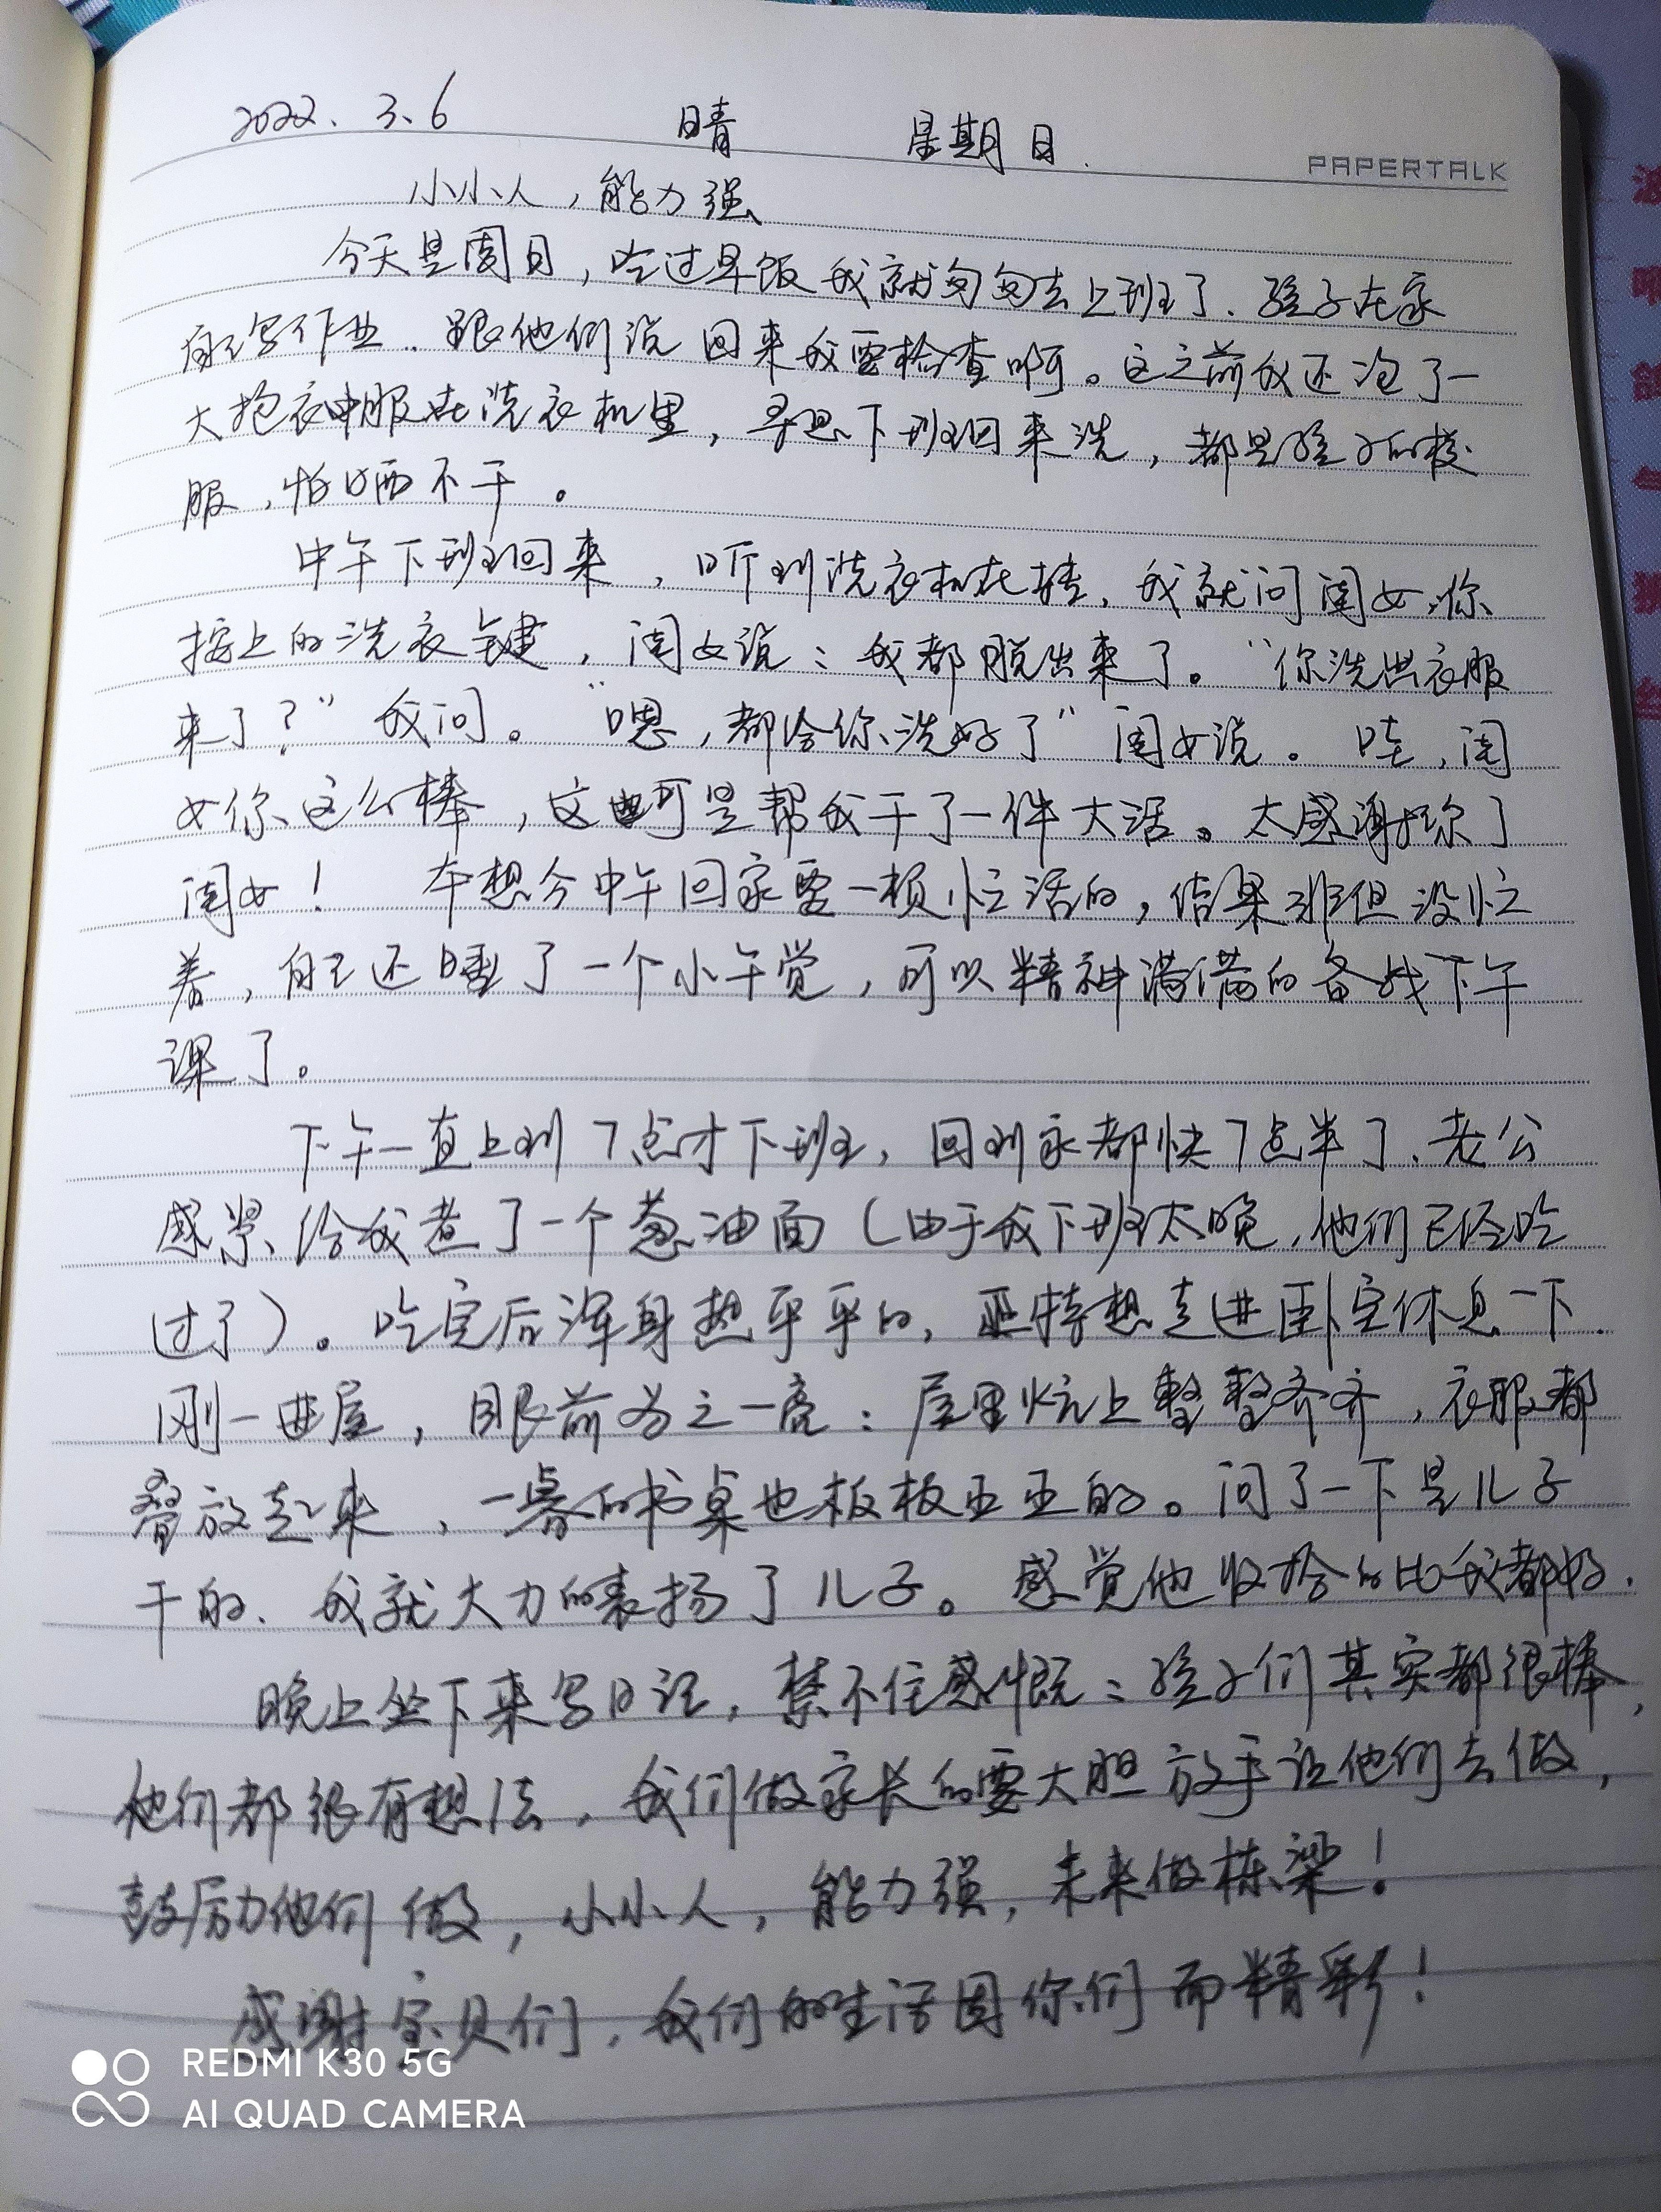 2022.3.6 晴 星期日.
PAPERTALK
小小人，能力强
今天是周日，吃过早饭我就匆匆去上班了.孩子在家
自己写作业.跟他们说回来我要检查啊。这之前我还泡了一
大抱衣服在洗衣机里，寻思下班回来洗，都是孩子的校
服，怕晒不干。
中午下班回来，听到洗衣机在转，我就问闺女，你
按上的洗衣键，闺女说：我都脱出来了。“你洗出衣服
来了？”我问。“嗯，都给你洗好了”闺女说。哇，闺
女你这么棒，这可是帮我干了一件大活。太感谢你了
闺女！ 本想今中午回家要一顿忙活的，结果非但没忙
着，自己还睡了一个小午觉，可以精神满满的备战下午
课了。
下午一直上到7点才下班，回到家都快7点半了.老公
感紧给我煮了一个葱油面（由于我下班太晚，他们已经吃
过了）。吃完后浑身热乎乎的，正待想走进卧室休息一下.
刚一进屋，眼前为之一亮：屋里炕上整整齐齐，衣服都
叠放起来，一旁的书桌也板板正正的。问了一下是儿子
干的.我就大力的表扬了儿子。感觉他收拾的比我都好.
晚上坐下来写日记，禁不住感慨：孩子们其实都很棒，
他们都很有想法，我们做家长的要大胆放手让他们去做，
鼓励他们做，小小人，能力强，未来做栋梁！
感谢宝贝们，我们的生活因你们而精彩！
REDMI K30 5G
AI QUAD CAMERA